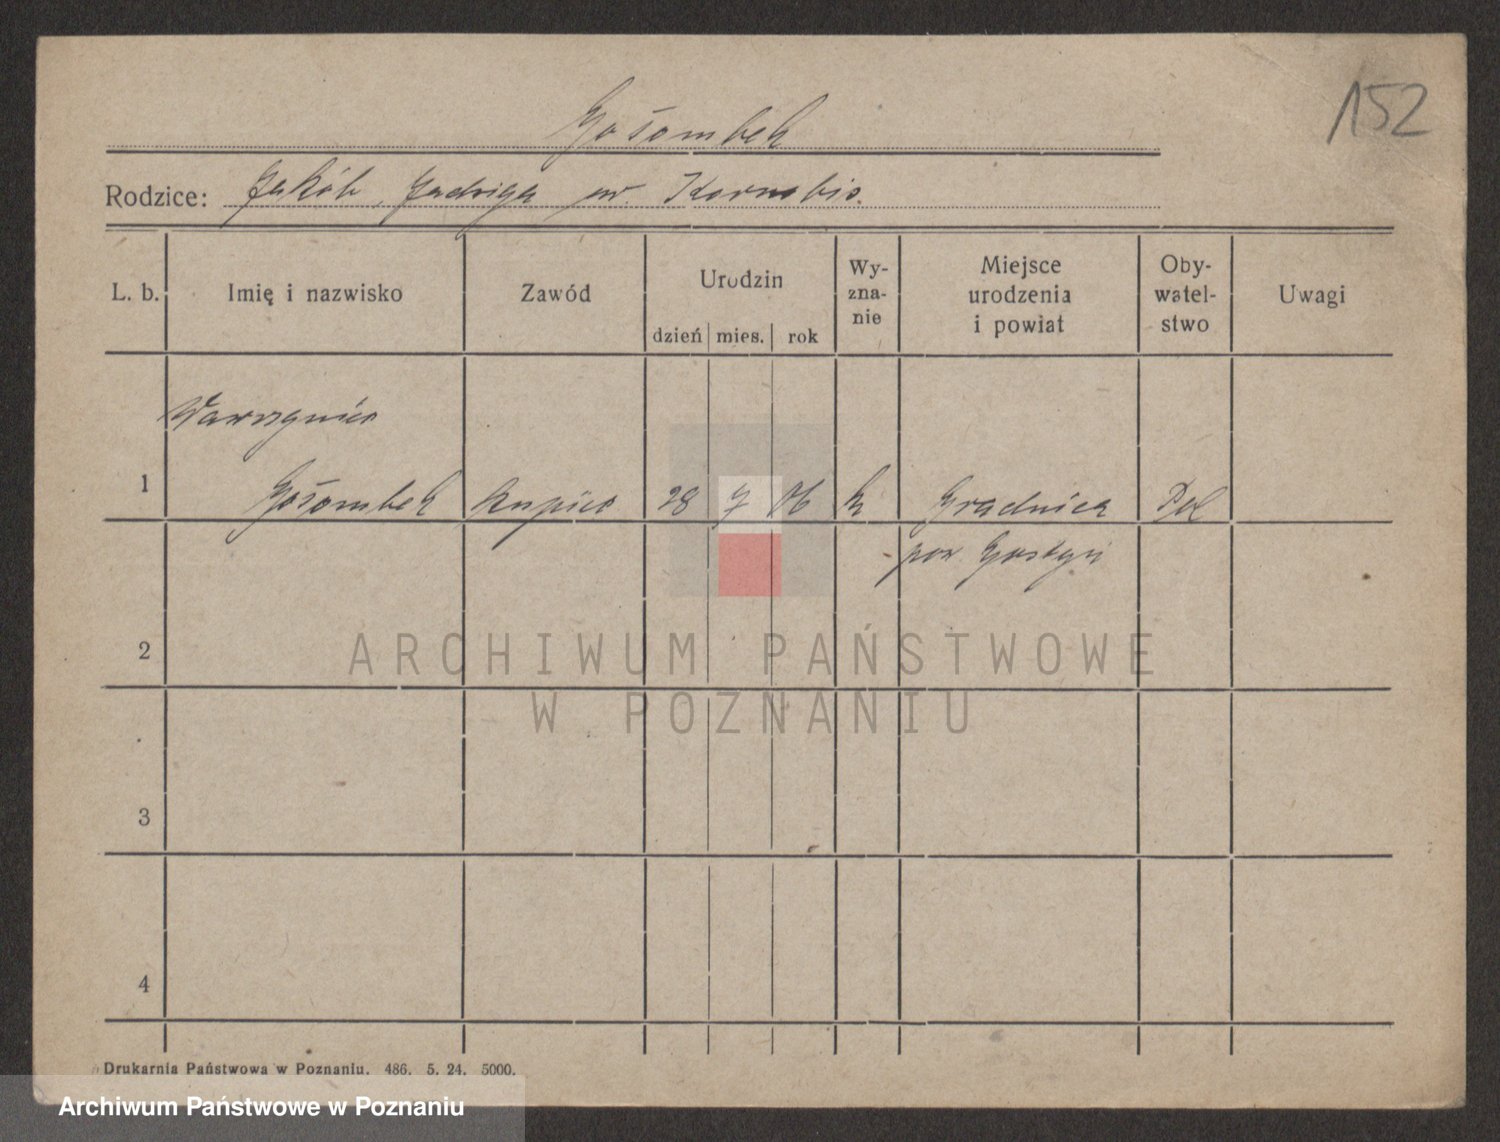 152
Gośombek
Rodzice: Jakób, Jadwiga ur. Kornobis.
L. b. Imię i nazwisko Zawód Urodzin dzień mies. rok Wy-zna-nie Miejsce urodzenia i powiat Oby-watel-stwo Uwagi
Wawrzyniec
1 Gośombek kupiec 28 7 06 k Gradnica Pol
pow. Gostyń
2
ARCHIWUM PAŃSTWOWE
W POZNANIU
3
4
Drukarnia Państwowa w Poznaniu. 486. 5. 24. 5000.
Archiwum Państwowe w Poznaniu